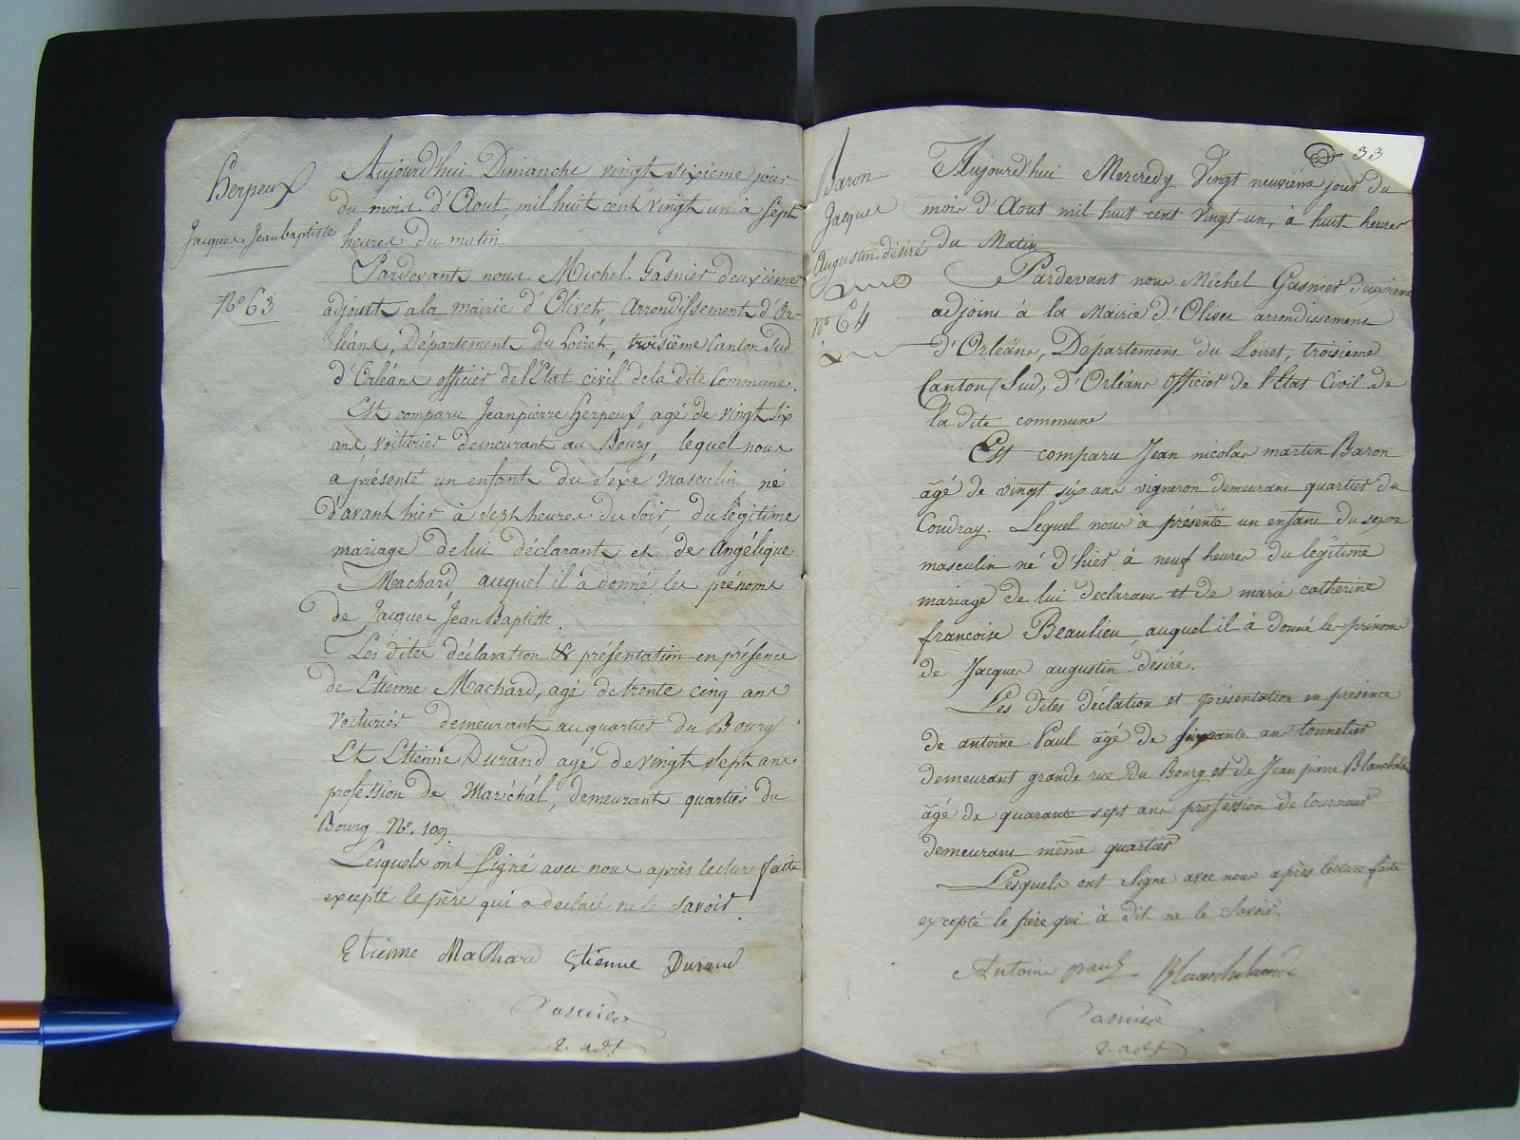 Herpeux
Jacques Jean baptiste
N° 63
Aujourd'hui Dimanche vingt sixieme jour
du mois d'Aout mil huit cent vingt un à sept
heures du matin
Pardevant nous Michel Gasnier deuxième
adjoint a la mairie d'Olivet, arrondissement d'Or-
léans, Département du Loiret, troisième Canton Sud
d'Orléans officier de l'Etat civil de la dite Commune.
Est comparu Jean pierre Herpeux, agé de vingt six
ans voiturier demeurant au Bourg, lequel nous
a présenté un enfant du sexe masculin né
d'avant hier à sept heures du soir du légitime
mariage de lui déclarant et de Angélique
Machard auquel il a donné les prénoms
de Jacques Jean Baptiste.
Les dites déclaration & présentation en présence
de Etienne Machard, agé de trente cinq ans
voiturier demeurant au quartier du Bourg
Et Etienne Durand agé de vingt sept ans
profession de Maréchal, demeurant quartier du
Bourg N°. 109.
Lesquels ont signé avec nous après lecture faite
excepté le père qui a declaré ne le savoir.
Etienne Machard Etienne Durand
Gasnier
2. adjt
33
Baron
Jacques
Augustin désiré
N° 64
Aujourd'hui Mercredy Vingt neuvième jour du
mois d'Aout mil huit cent vingt un, à huit heures
du Matin
Pardevant nous Michel Gasnier deuxième
adjoint à la Mairie d'Olivet arrondissement
d'Orléans, Departement du Loiret, troisieme
Canton (Sud, d'Orléans officier de l'Etat Civil de
la dite commune
Est comparu Jean nicolas martin Baron
âgé de vingt six ans vigneron demeurant quartier du
Coudray. Lequel nous à présenté un enfant du sexe
masculin né d'hier à neuf heures du légitime
mariage de lui declarant et de marie catherine
francoise Beaulieu auquel il à donné le prénom
de Jacques augustin désiré.
Les dites déclation et présentation en présence
de antoine Paul âgé de soixante ans tonnelier
demeurant grande rue du Bourg et de Jean pierre
âgé de quarante sept ans profession de tourneur
demeurant même quartier
Lesquels ont signe avec nous après lecture faite
excepté le père qui à dit ne le savoir.
Antoine paul
Gasnier
2. adjt